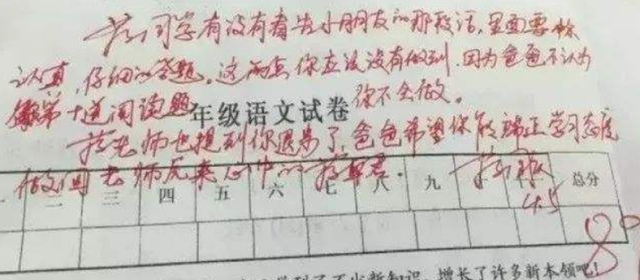 蒋同学有没有看告小朋友的那段话，里面要你
认真，仔细的答题。这两点你应该没有做到，因为爸爸不认为
像第十道阅读题 你不会做。
年级语文试卷
蒋老师也提到你退步了，爸爸希望你能端正学习态度
做回老师原来心中的蒋
二 三 四 五 六 七 八 九 总分
4.5
80
学到了不少新知识，增长了许多新本领吧！